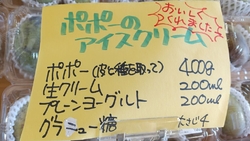 ポポーの
アイスクリーム
おいしく
つくれました!
ポポー(皮と種を取って) 400g
生クリーム 200ml
プレーンヨーグルト 200ml
グラニュー糖 大さじ4